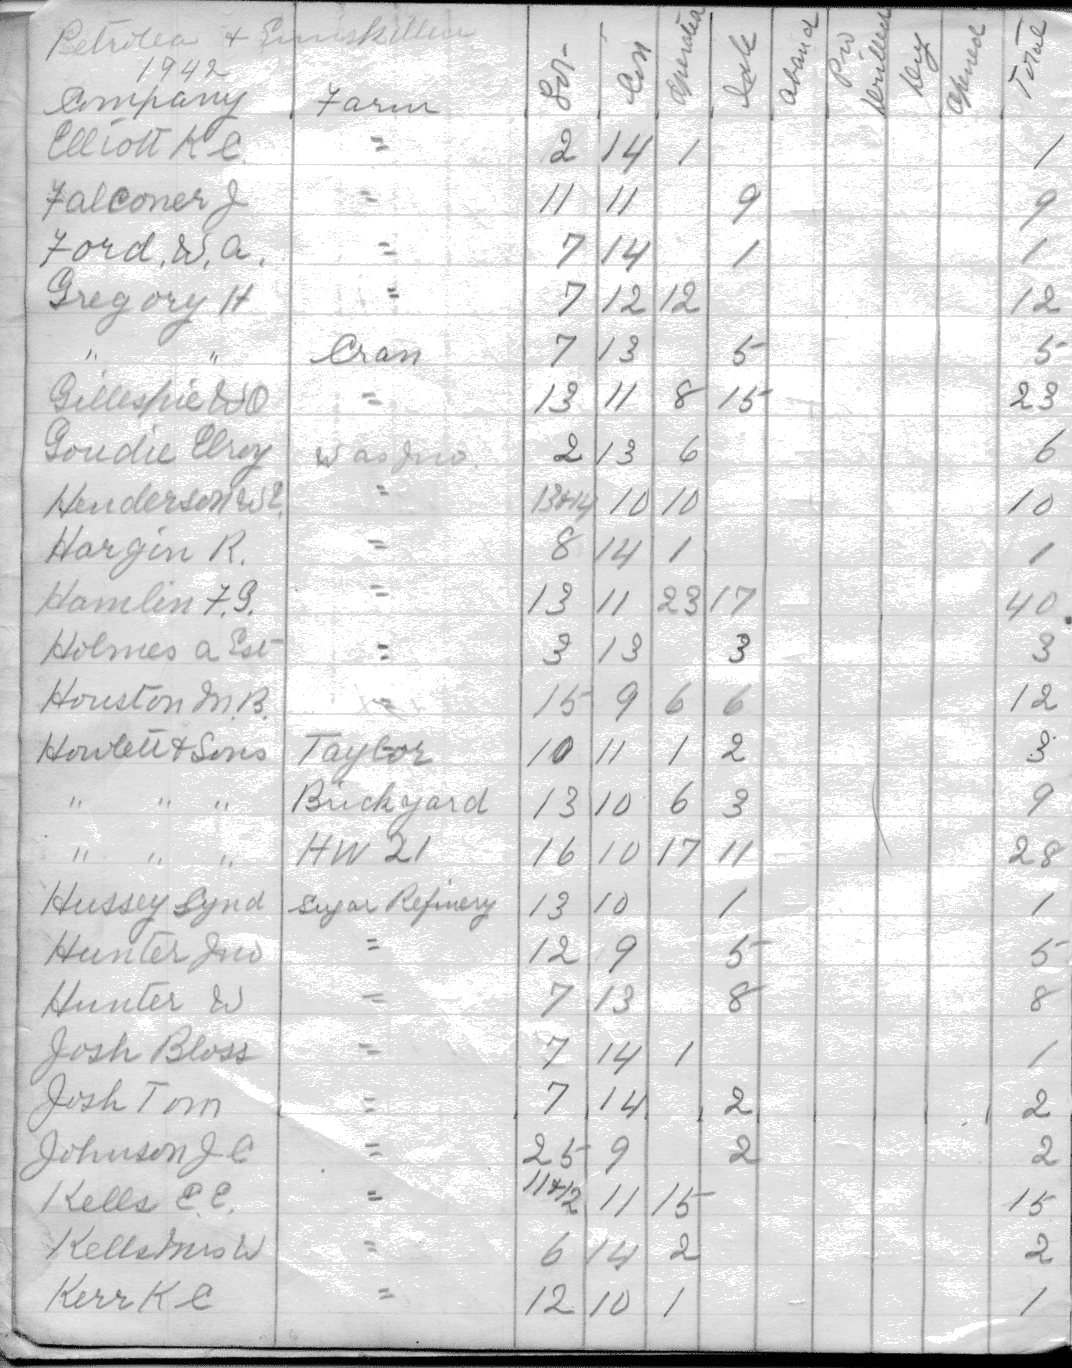 Petrolea & Enniskillen
1942
Company Farm Lot Con Operated Idle Aband Pro Drilled Dry Opened Total
Elliott K C. " 2 14 1 1
Falconer J " 11 11 9 9
Ford, W, A. " 7 14 1 1
Gregory H " 7 12 12 12
" " Cran 7 13 5 5
Gillespie WO " 13 11 8 15 23
Goudie Elroy was Jno. 2 13 6 6
Henderson W E. " 13+14 10 10 10
Hargin R. " 8 14 1 1
Hamlin F.G. " 13 11 23 17 40
Holmes A Est " 3 13 3 3
Houston M.B. " 15 9 6 6 12
Howlett & Sons Taylor 10 11 1 2 3
" " " Brickyard 13 10 6 3 9
" " " HW 21 16 10 17 11 28
Hussey Synd Sugar Refinery 13 10 1 1
Hunter Jno " 12 9 5 5
Hunter W " 7 13 8 8
Josh Bloss " 7 14 1 1
Josh Tom " 7 14 2 2
Johnson J C " 25 9 2 2
Kells E.E. " 11+12 11 15 15
Kells Mrs W " 6 14 2 2
Kerr K C " 12 10 1 1